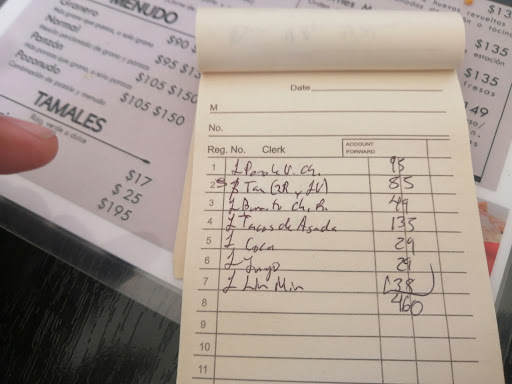 MENUDO
Granero
Normal
$90
Panzón
$95 $13
Pozonudo
$105 $150
Combinación de pozole y menudo
$105 $150
TAMALES
Rojo, verde o dulce
$17
$ 25
$195
huevos revueltos
$13
$135
estación
$135
fresas
149
Date
M
No.
Reg. No. Clerk ACCOUNT FORWARD
1 1 Pozole V. Ch. 95
2 5 Tam (2R y 1V) 85
3 1 Burrito Ch. R. 49
4 1 Tacos de Asada 135
5 1 Coca 29
6 1 Jugo 29
7 1 Lim Min 38
8 460
9
10
11